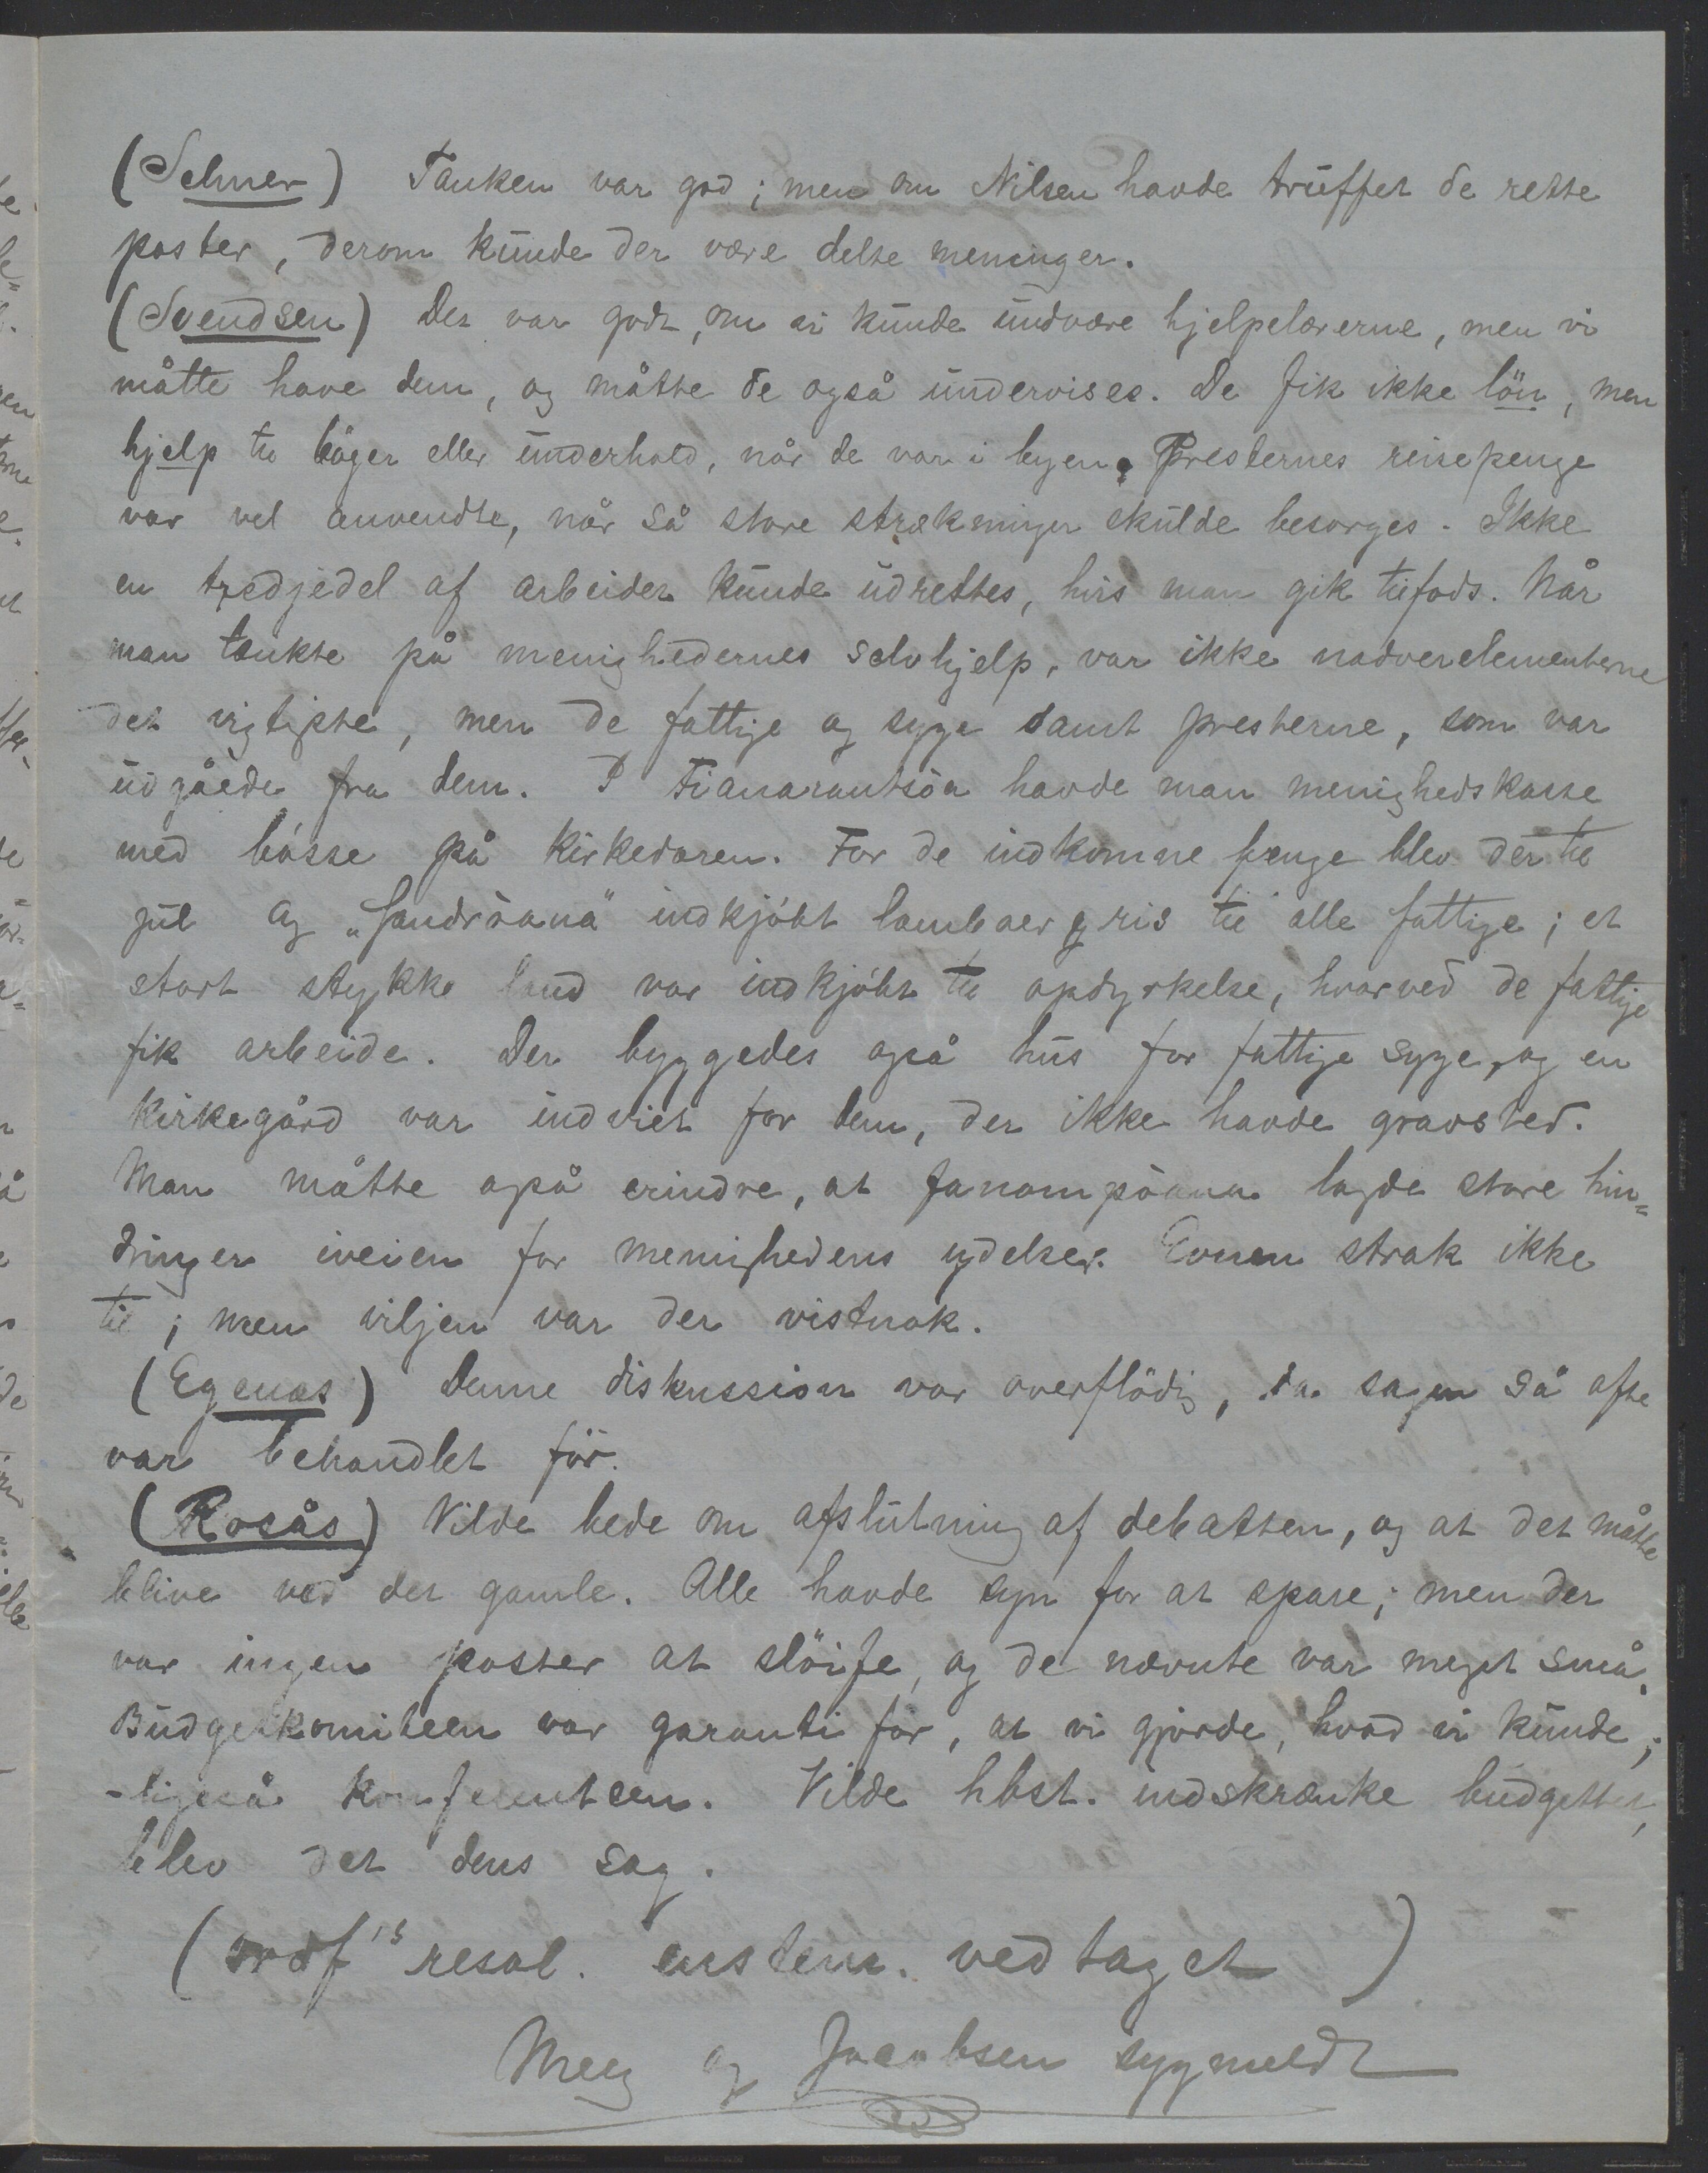 (Selmer) Tanken var god; men om Nilsen havde truffet de rette
poster, derom kunde der være delte meninger.
(Svendsen) Det var godt, om vi kunde undvære hjelpelærerne, men vi
måtte have dem, og måtte de også undervises. De fik ikke lön, men
hjelp til böger eller underhold, når de var i byen. Presternes reisepenge
var vel anvendte, når så store strækninger skulde besørges. Ikke
en tredjedel af arbeidet kunde udrettes, hvis man gik tilfods. Når
man tænkte på menighedernes selvhjelp, var ikke nadverelementerne
det vigtigste, men de fattige og syge samt presterne, som var
udgåede fra dem. I Fianarantsòa havde man menighedskasse
med bösse på kirkedøren. For de indkomne penge blev der til
jul og „fandròana" indkjöbt lambaer og ris til alle fattige; et
stort stykke land var indkjöbt til opdyrkelse, hvorved de fattige
fik arbeide. Der byggedes også hus for fattige syge, og en
kirkegård var indviet for dem, der ikke havde gravsted.
Man måtte også erindre, at fanompòana lagde store hin=
dringer iveien for menighedens ydelser. Evnen strak ikke
til; men viljen var der vistnok.
(Egenæs) Denne diskussion var overflödig, da sagen så ofte
var behandlet för.
(Rosås) Vilde bede om afslutning af debatten, og at det måtte
blive ved det gamle. Alle havde syn for at spare; men der
var ingen poster at slöife, og de nævnte var meget små.
Budgetkomiteen var garanti for, at vi gjorde, hvad vi kunde;
-ligeså konferentsen. Vilde hbst. indskrænke budgettet,
blev det dens sag.
( 's resol. enstem. vedtaget )
Meeg og Jacobsen sygmeldt